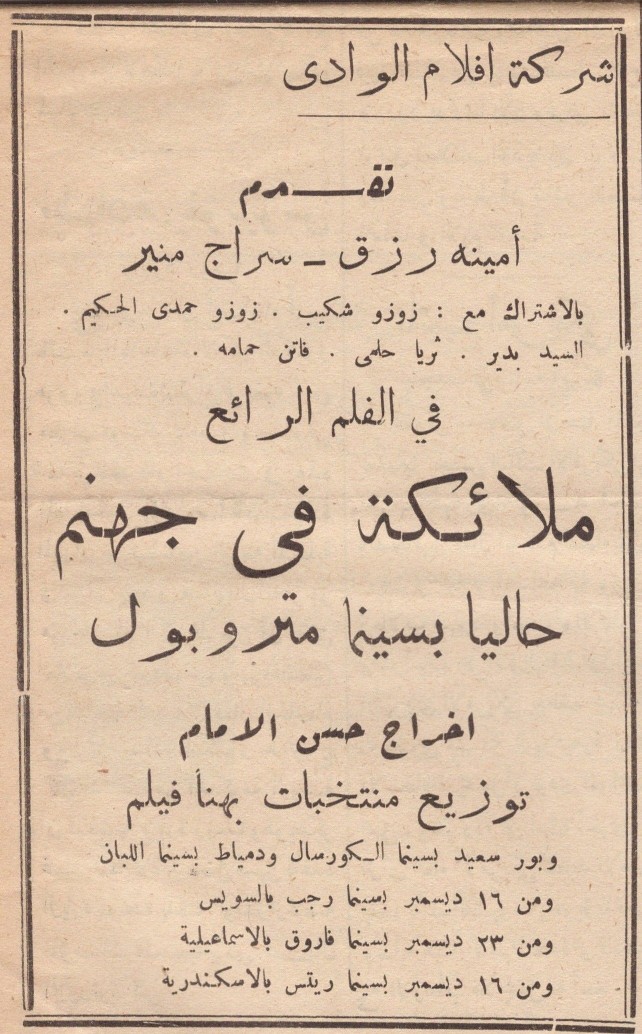 شركة افلام الوادى
تقـــدم
أمينه رزق ـ سراج منير
بالاشتراك مع : زوزو شكيب . زوزو حمدى الحكيم .
السيد بدير . ثريا حلمى . فاتن حمامه .
في الفلم الرائع
ملائكة فى جهنم
حاليا بسينما متروبول
اخراج حسن الامام
توزيع منتخبات بهنأ فيلم
وبور سعيد بسينما الكورسال ودمياط بسينما اللبان
ومن ١٦ ديسمبر بسينما رجب بالسويس
ومن ٢٣ ديسمبر بسينما فاروق بالاسماعيلية
ومن ١٦ ديسمبر بسينما ريتس بالاسكندرية